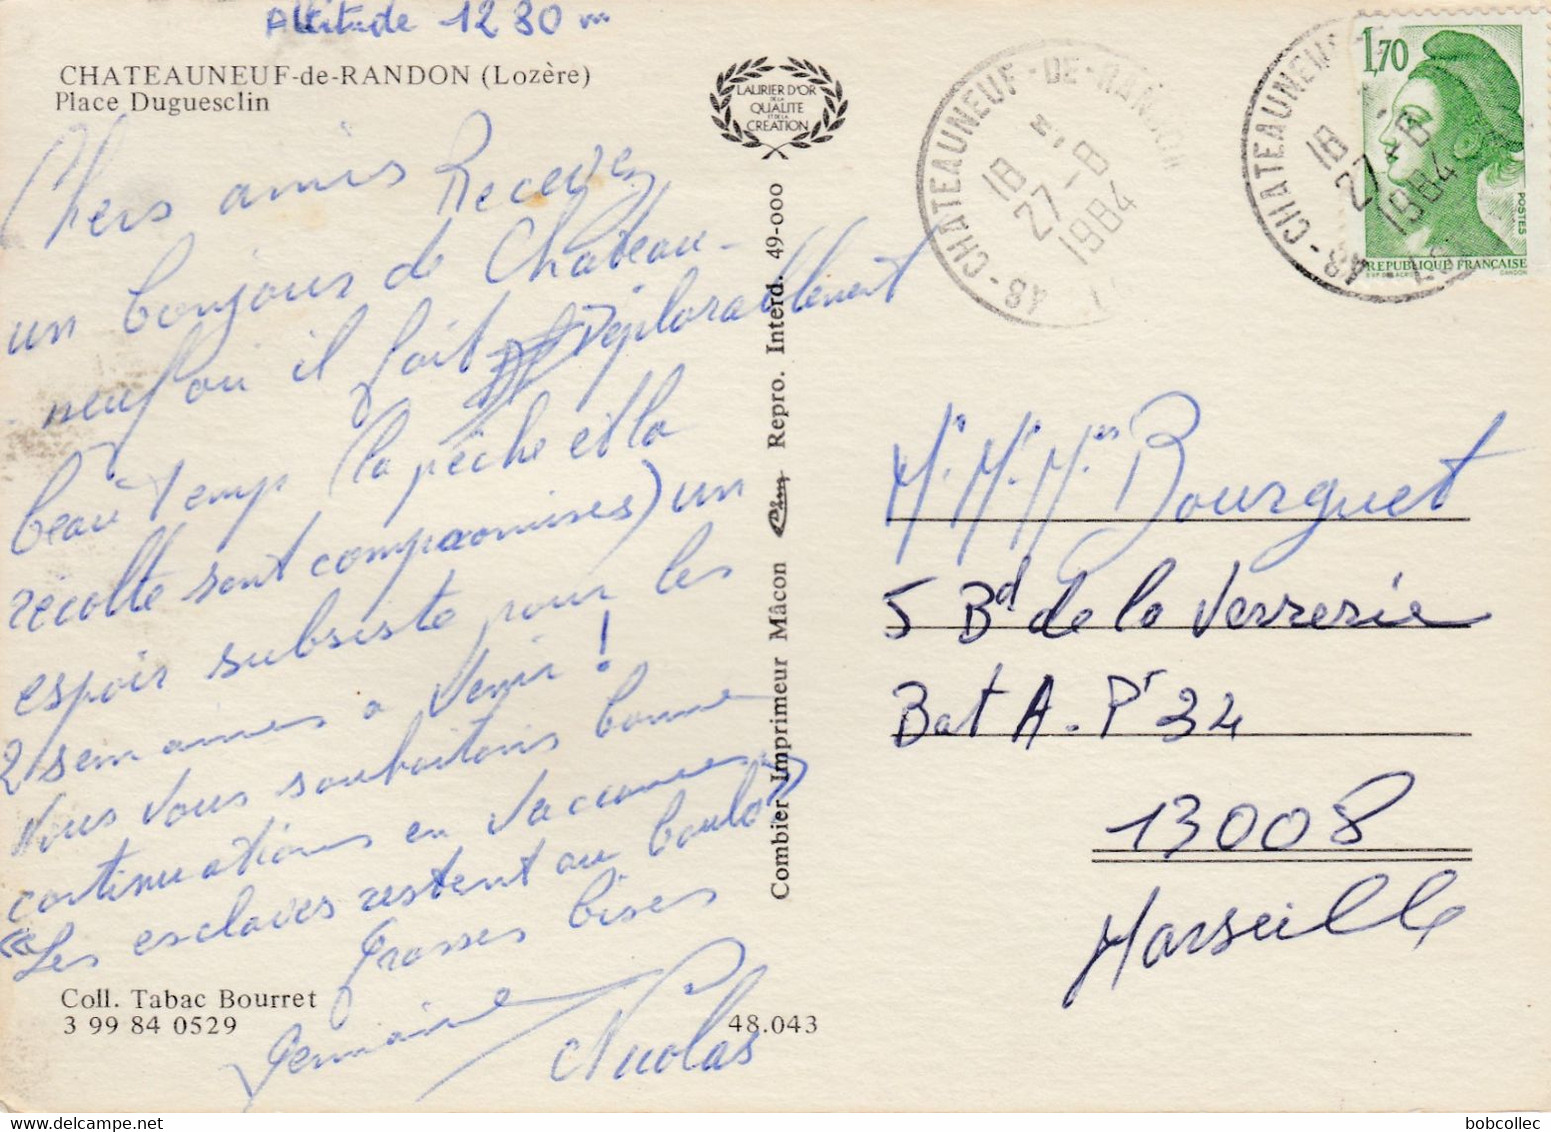 Altitude 1230 m
CHATEAUNEUF-de-RANDON (Lozère)
Place Duguesclin
LAURIER D'OR
DE LA
QUALITE
ET DE LA
CREATION
Chers amis Recevez
un bonjour de Chateau-
neuf ou il fait déplorablement
beau temps (la pêche et la
récolte sont compromises) un
espoir subsiste pour les
2 semaines a venir !
Nous vous souhaitons bonne
continuations en vacances
«Les esclaves restent au boulot»
Grosses bises
Germaine
Nicolas
Coll. Tabac Bourret
3 99 84 0529
48.043
Combier Imprimeur Mâcon Repro. Interd. 49-000
48 - CHATEAUNEUF-DE-RANDON
18 H
27-8
1984
48 - CHATEAUNEUF
18
27-8
1984
1,70
POSTES
REPUBLIQUE FRANÇAISE
GANDON
Mr. Mr. Mes Bourguet
5 Bd de la Verrerie
Bat A. Pr 34
13008
Marseille
bobcollec